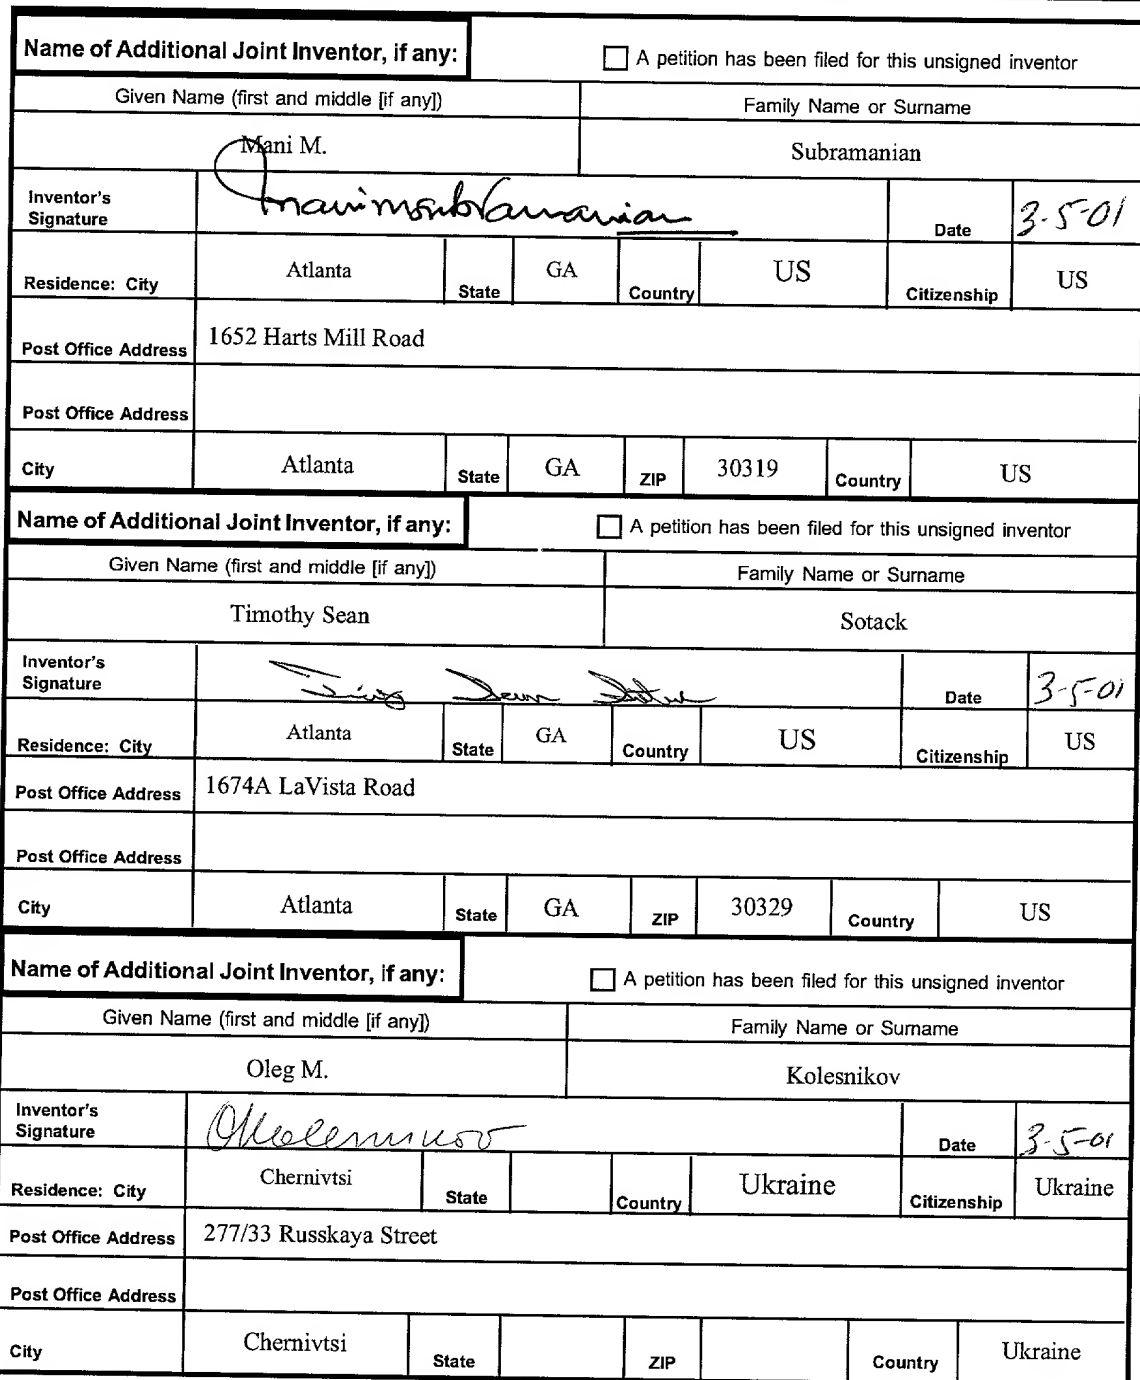 Name of Additional Joint Inventor, if any: A petition has been filed for this unsigned inventor
Given Name (first and middle [if any]) Family Name or Surname
Mani M. Subramanian
Inventor's Signature Date 3-5-01
Residence: City Atlanta State GA Country US Citizenship US
Post Office Address 1652 Harts Mill Road
Post Office Address
City Atlanta State GA ZIP 30319 Country US
Name of Additional Joint Inventor, if any: A petition has been filed for this unsigned inventor
Given Name (first and middle [if any]) Family Name or Surname
Timothy Sean Sotack
Inventor's Signature Date 3-5-01
Residence: City Atlanta State GA Country US Citizenship US
Post Office Address 1674A LaVista Road
Post Office Address
City Atlanta State GA ZIP 30329 Country US
Name of Additional Joint Inventor, if any: A petition has been filed for this unsigned inventor
Given Name (first and middle [if any]) Family Name or Surname
Oleg M. Kolesnikov
Inventor's Signature Date 3-5-01
Residence: City Chernivtsi State Country Ukraine Citizenship Ukraine
Post Office Address 277/33 Russkaya Street
Post Office Address
City Chernivtsi State ZIP Country Ukraine